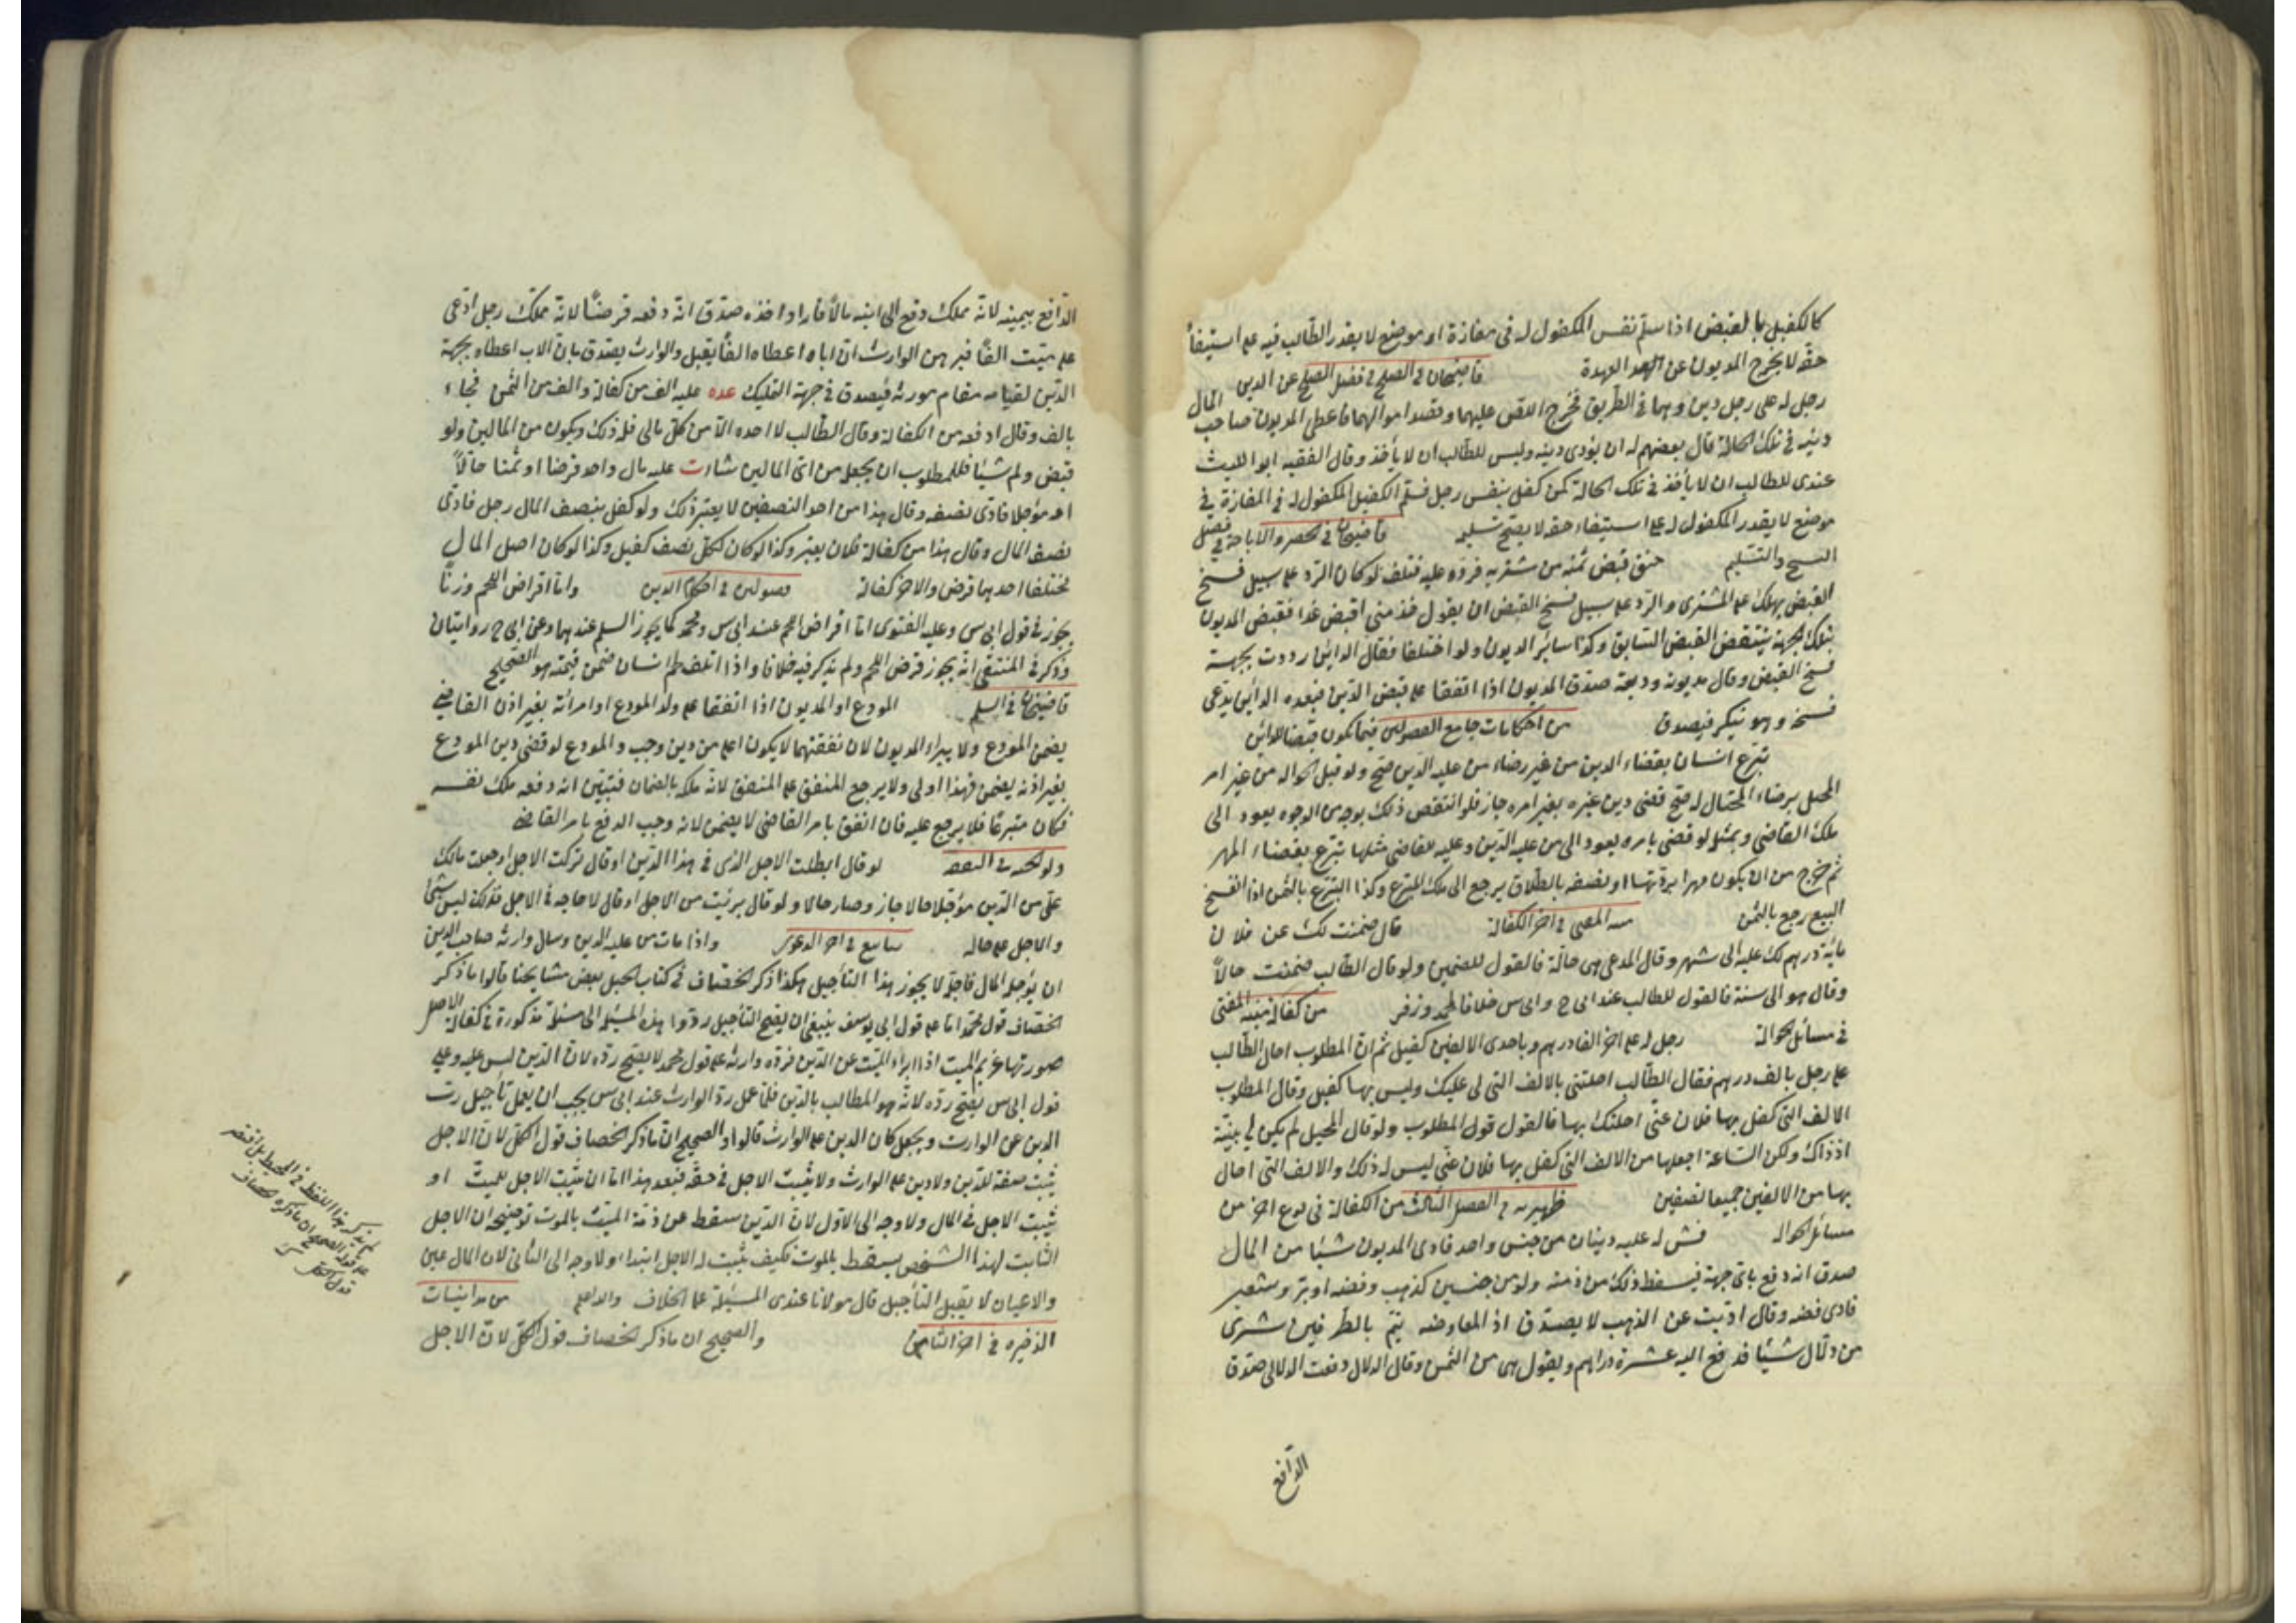 كالكفيل بالقبض اذا سلم نفس المكفول له فى مفازة او موضع لا يقدر الطالب فيه على استيفاء
حقه لا يخرج المديون عن العهدة قاضيخان فى الصلح فى فصل الصلح عن الدين
رجل له على رجل دين وهما فى الطريق فخرج اللص عليهما وقصد اموالهما فاعطى المديون صاحب المال
دينه فى تلك الحالة قال بعضهم له ان يؤدى دينه وليس للطالب ان لا يأخذ وقال الفقيه ابو الليث
عندى للطالب ان لا يأخذ فى تلك الحالة كمن كفل بنفس رجل فسلم الكفيل المكفول له فى المفازة فى
موضع لا يقدر المكفول له على استيفاء حقه لا يصح تسليمه قاضيخان فى الحضر والاباحة فى فصل
التسليم قبض ثمنه من مشتريه فرده عليه فتلف لو كان الرد على سبيل فسخ
القبض يهلك على المشترى والرد على سبيل فسخ القبض ان يقول خذ منى اقبض غدا فقبض المديون
بتلك الجهة ينتقض القبض السابق وكذا سائر الديون ولو اختلفا فقال الدائن رددت بجهة
فسخ القبض وقال مديونه وديعة صدق المديون اذا اتفقا على قبض الدين فبعده الدائن يدعى
فسخه وهو ينكر فيصدق من احكامات جامع الفصولين فيما يكون قبضا للدائن
تبرع انسان بقضاء الدين من غير رضاء من عليه الدين صح ولو قبل الحوالة من غير امر
المحيل برضاء المحتال له صح قضى دين غيره بغير امره جاز فلو انتقض ذلك بوجه من الوجوه يعود الى
ملك القاضى وبمثله لو قضى بامره يعود الى من عليه الدين وعليه للقاضى مثلها تبرع بقضاء المهر
ثم خرج من ان يكون مهرا بردتها او نصفه بالطلاق يرجع الى ملك المتبرع وكذا التبرع بالثمن اذا انفسخ
البيع رجع بالثمن فى اخر الكفالة قال ضمنت لك عن فلان
مأية درهم لك عليه الى شهر وقال المدعى هى حالة فالقول للضمين ولو قال الطالب ضمنت حالا
وقال هو الى سنة فالقول للطالب عند ابى ح وابى س خلافا لمحمد وزفر من كفالة منية المفتى
فى مسائل الحوالة رجل له على اخر الفا درهم وباحدى الالفين كفيل ثم ان المطلوب احال الطالب
على رجل بالف درهم فقال الطالب احلتنى بالالف التى لى عليك وليس بها كفيل وقال المطلوب
الالف التى كفل بها فلان عنى احلتك بها فالقول قول المطلوب ولو قال المحيل لم يكن لى بينة
اذ ذاك ولكن الساعة اجعلها من الالف التى كفل بها فلان عنى ليس له ذلك والالف التى احال
بها من الالفين جميعا نصفين ظهيريه فى الفصل الثالث من الكفالة فى نوع اخر من
مسائل الحوالة له عليه دينان من جنس واحد فادى المديون شيئا من المال
صدق انه دفع باى جهة فيسقط ذلك من ذمته ولو من جنسين كذهب وفضه او بر وشعير
فادى فضه وقال اديت عن الذهب لا يصدق اذ المعاوضه يتم بالطرفين شرى
من دلال شيئا فدفع اليه عشرة دراهم ويقول هى من الثمن وقال الدلال دفعت الدلالى صدق
الدافع
الدافع بيمينه لانه مملك دفع الى ابنه مالا فاراد اخذه صدق انه دفعه قرضا لانه مملك رجل ادعى
على ميت الفا فبرهن الوارث ان اباه اعطاه الفا يقبل والوارث يصدق بان الاب اعطاه بجهة
الدين لقيامه مقام مورثه فيصدق فى جهة التمليك عده عليه الف من كفالة والف من الثمن فجاء
بالف وقال ادفعه من الكفالة وقال الطالب لا اخذه الا من كل مالى فله ذلك ويكون من المالين ولو
قبض ولم شيئا فللمطلوب ان يجعل من اى المالين شاء ت عليه مال واحد قرضا او ثمنا حالا
او مؤجلا فادى نصفه وقال هذا من احد النصفين لا يعتبر ذلك ولو كفل بنصف المال رجل فادى
نصف المال وقال هذا من كفالة فلان يعتبر وكذا لو كان لكل نصف كفيل وكذا لو كان اصل المال
مختلفا احدهما قرض والاخر كفالة فصولين فى احكام الدين واما اقراض اللحم وزنا
يجوز فى قول ابى س وعليه الفتوى اما اقراض اللحم عند ابى س ومحمد كما يجوز السلم عندهما وعن ابى ح روايتان
وذكر فى المنتقى انه يجوز قرض اللحم ولم يذكر فيه خلافا واذا اتلف لحم انسان ضمن قيمته هو الصحيح
قاضيخان فى السلم المودع او المديون اذا انفقا على ولد المودع او امرأته بغير اذن القاضى
يضمن المودع ولا يبراء المديون لان نفقتهما لا يكون اعلى من دين وجب والمودع لو قضى دين المودع
بغير اذنه يضمن فهذا اولى ولا يرجع المنفق على المنفق لانه ملكه بالضمان فتبين انه دفعه ملك نفسه
فكان متبرعا فلا يرجع عليه فان انفق بامر القاضى لا يضمن لانه وجب الدفع بامر القاضى
لو قال ابطلت الاجل الذى فى هذا الدين او قال تركت الاجل او جعلت مالك
على من الدين مؤجلا حالا جاز وصار حالا ولو قال برئت من الاجل او قال لا حاجه فى الاجل فذلك ليس بشئ
والاجل على حاله فى اخر الدعوى واذا مات من عليه الدين وسأل وارثه صاحب الدين
ان يؤجل المال فاجل لا يجوز هذا التأجيل هكذا ذكر الخصاف فى كتاب الحيل بعض مشايخنا قالوا ما ذكر
الخصاف قول محمد اما على قول ابى يوسف ينبغى ان يصح التأجيل ردوا هذه المسئلة الى مسئلة مذكورة فى كفالة الاصل
صورتها غريم الميت اذا ابراء الميت عن الدين فرده وارثه على قول محمد لا يصح رده لان الدين ليس عليه وعلى
قول ابى س يصح رده لانه هو المطالب بالدين فلما عمل رد الوارث عند ابى س يجب ان يعمل تأجيل رب
الدين عن الوارث ويجعل كان الدين على الوارث قالوا والصحيح ان ما ذكر الخصاف قول الكل لان الاجل
يثبت صفة للدين ولا دين على الوارث ولا يثبت الاجل فى حقه فبعد هذا اما ان يثبت الاجل للميت او
يثبت الاجل فى المال ولا وجه الى الاول لان الدين سقط عن ذمة الميت بالموت توضيحه ان الاجل
الثابت لهذا الشخص يسقط بالموت فكيف يثبت له الاجل ابتداء ولا وجه الى الثانى لان المال عين
والاعيان لا يقبل التأجيل قال مولانا عندى المسئلة على الخلاف والله اعلم من مداينات
الذخيره فى اخر الثامن والصحيح ان ما ذكر الخصاف قول الكل لان الاجل
لم يذكر هذا اللفظ فى المحيط بل اقتصر
على قوله الصحيح ان ما ذكره الخصاف
قول الكل